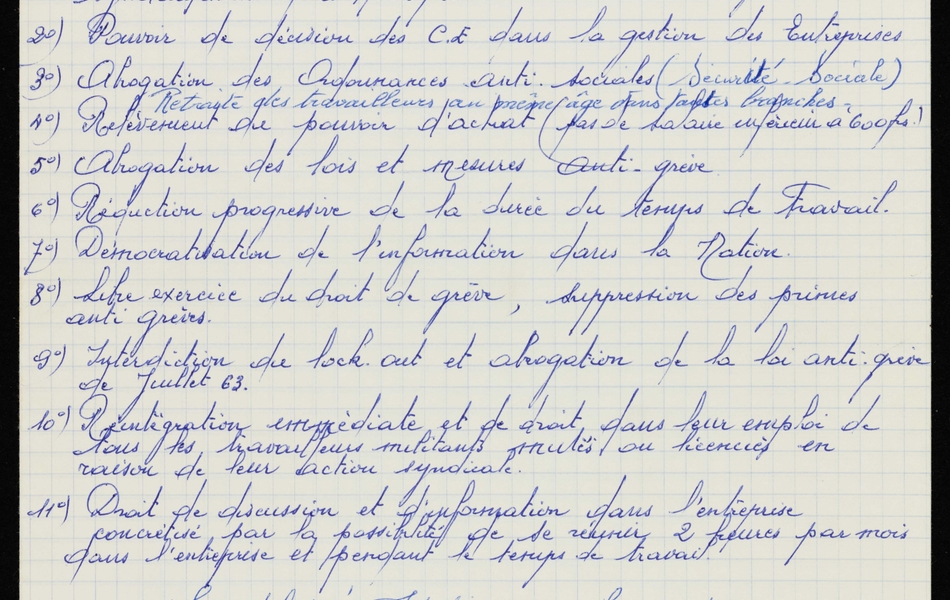 2°) Pouvoir de décision des C.E dans la gestion des Entreprises
3°) Abrogation des Ordonnances anti-sociales (Sécurité Sociale)
Retraite des travailleurs au même âge dans toutes branches.
4°) Relèvement du pouvoir d'achat (pas de salaire inférieur à 600frs.)
5°) Abrogation des lois et mesures anti-grève
6°) Réduction progressive de la durée du temps de Travail.
7°) Démocratisation de l'information dans la Nation.
8°) Libre exercice du droit de grève, suppression des primes
anti grèves.
9°) Interdiction du lock-out et abrogation de la loi anti-grève
de Juillet 63.
10°) Réintégration immédiate et de droit, dans leur emploi de
tous les travailleurs militants mutés ou licenciés en
raison de leur action syndicale.
11°) Droit de discussion et d'information dans l'entreprise
concrétisé par la possibilité de se réunir 2 heures par mois
dans l'entreprise et pendant le temps de travail.